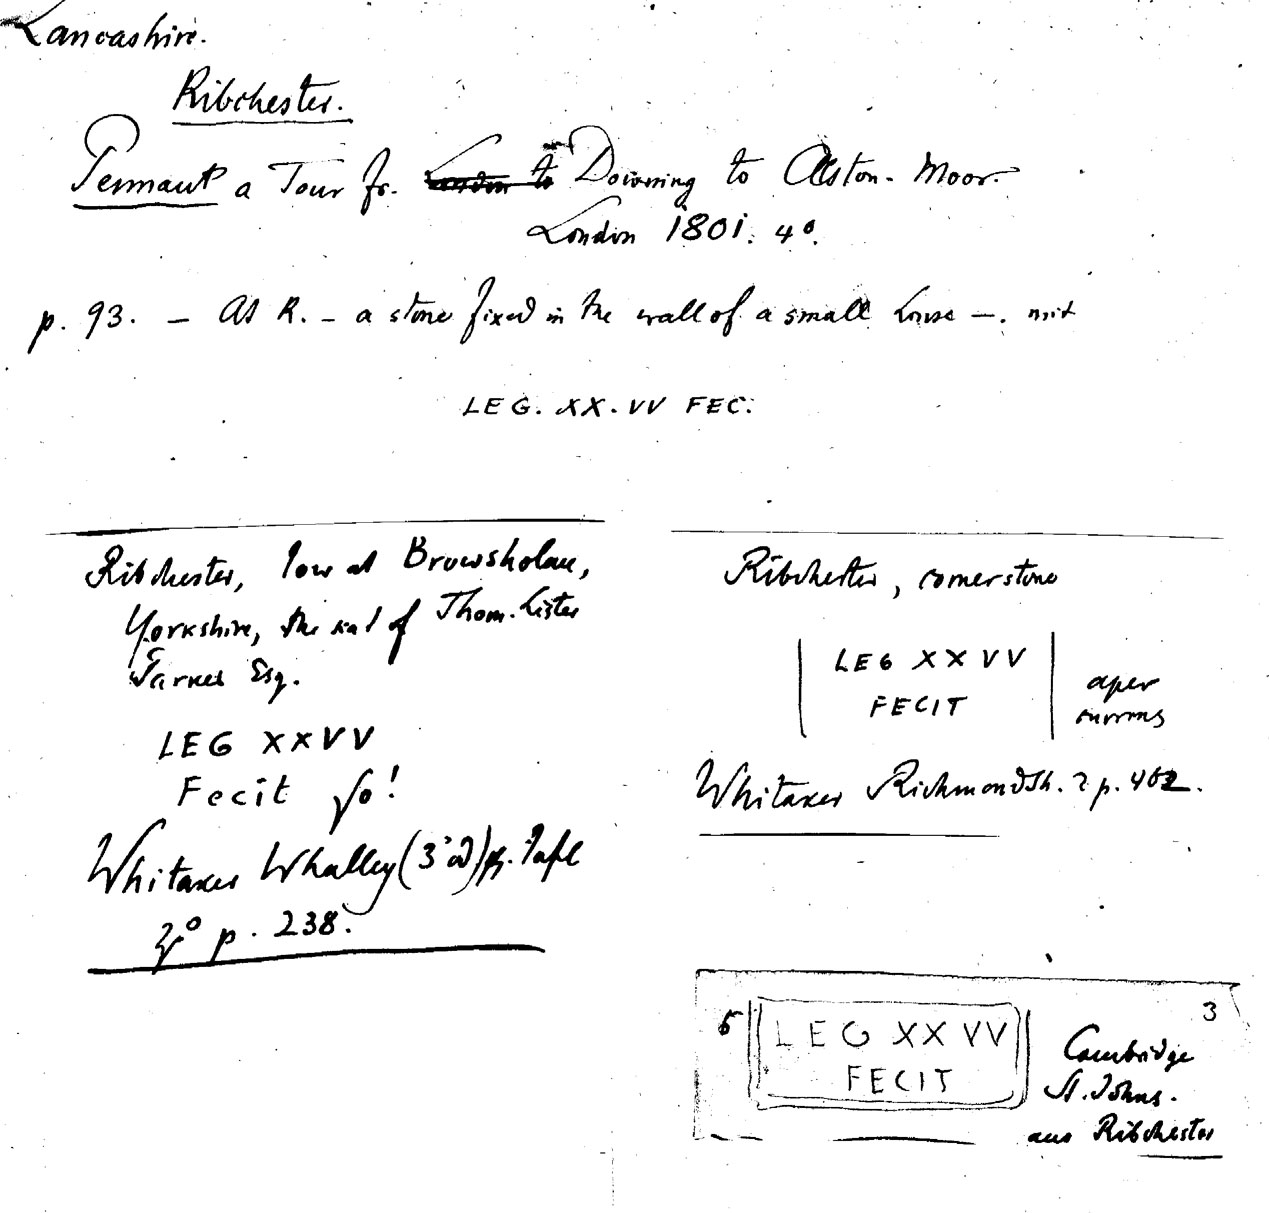 Lancashire.
Ribchester.
Pennant a Tour fr. London to Downing to Alston-Moor.
London 1801. 4°.
p. 93. – At R. – a stone fixed in the wall of a small house –. mit
LEG. XX. VV FEC.
Ribchester, now at Browsholme,
Yorkshire, the seat of Thom. Lister
Parker Esq.
LEG XXVV
Fecit so!
Whitaker Whalley (3 ed) Tafel
p. 238.
Ribchester, cornerstone
LEG XX VV
FECIT
aper
currens
Whitaker Richmondsh. 2 p. 462.
5
3
LEG XX VV
FECIT
Cambridge
St. Johns.
aus Ribchester